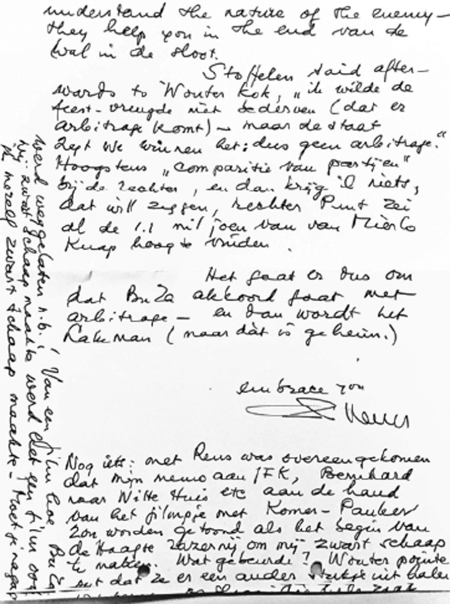 understand the nature of the enemy –
they help you in the end van de
wal in de sloot.
Stoffelen said after-
wards to Wouter Kok, „ik wilde de
feest-vreugde niet bederven (dat er
arbitrage komt) – maar de staat
zegt we winnen het; dus geen arbitrage."
Hoogstens „comparitie van partijen"
bij de rechter, en dan krijg il niets,
dat will zeggen, rechter Punt zei
al de 1.1 miljoen van van Mierlo
knap hoog te vinden.
Het gaat er dus om
dat BuZa akkoord gaat met
arbitrage – en dan wordt het
Lakeman (maar dàt is geheim.)
embrace you
Nog iets: met Rens was overeengekomen
dat mijn memo aan JFK, Bernhard
naar Witte Huis etc aan de hand
van het filmpje met Komer-Pauker
zou worden getoond als het begin van
de Haagse razernij om mij zwart schaap
te maken. Wat gebeurde? Wouter pointe
out dat ze er een ander stukje uit halen
werd weggelaten n.b.! Van een film hoe BuZa
mij zwart schaap maakte werd dat een film over
ik mezelf zwart schaap maakte –